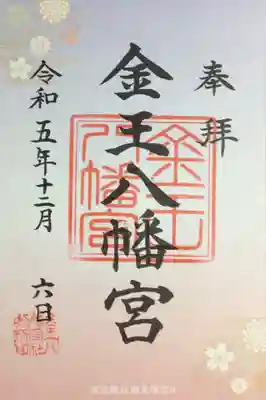 奉拝
金王八幡宮
令和五年十二月 六日
金王八幡宮